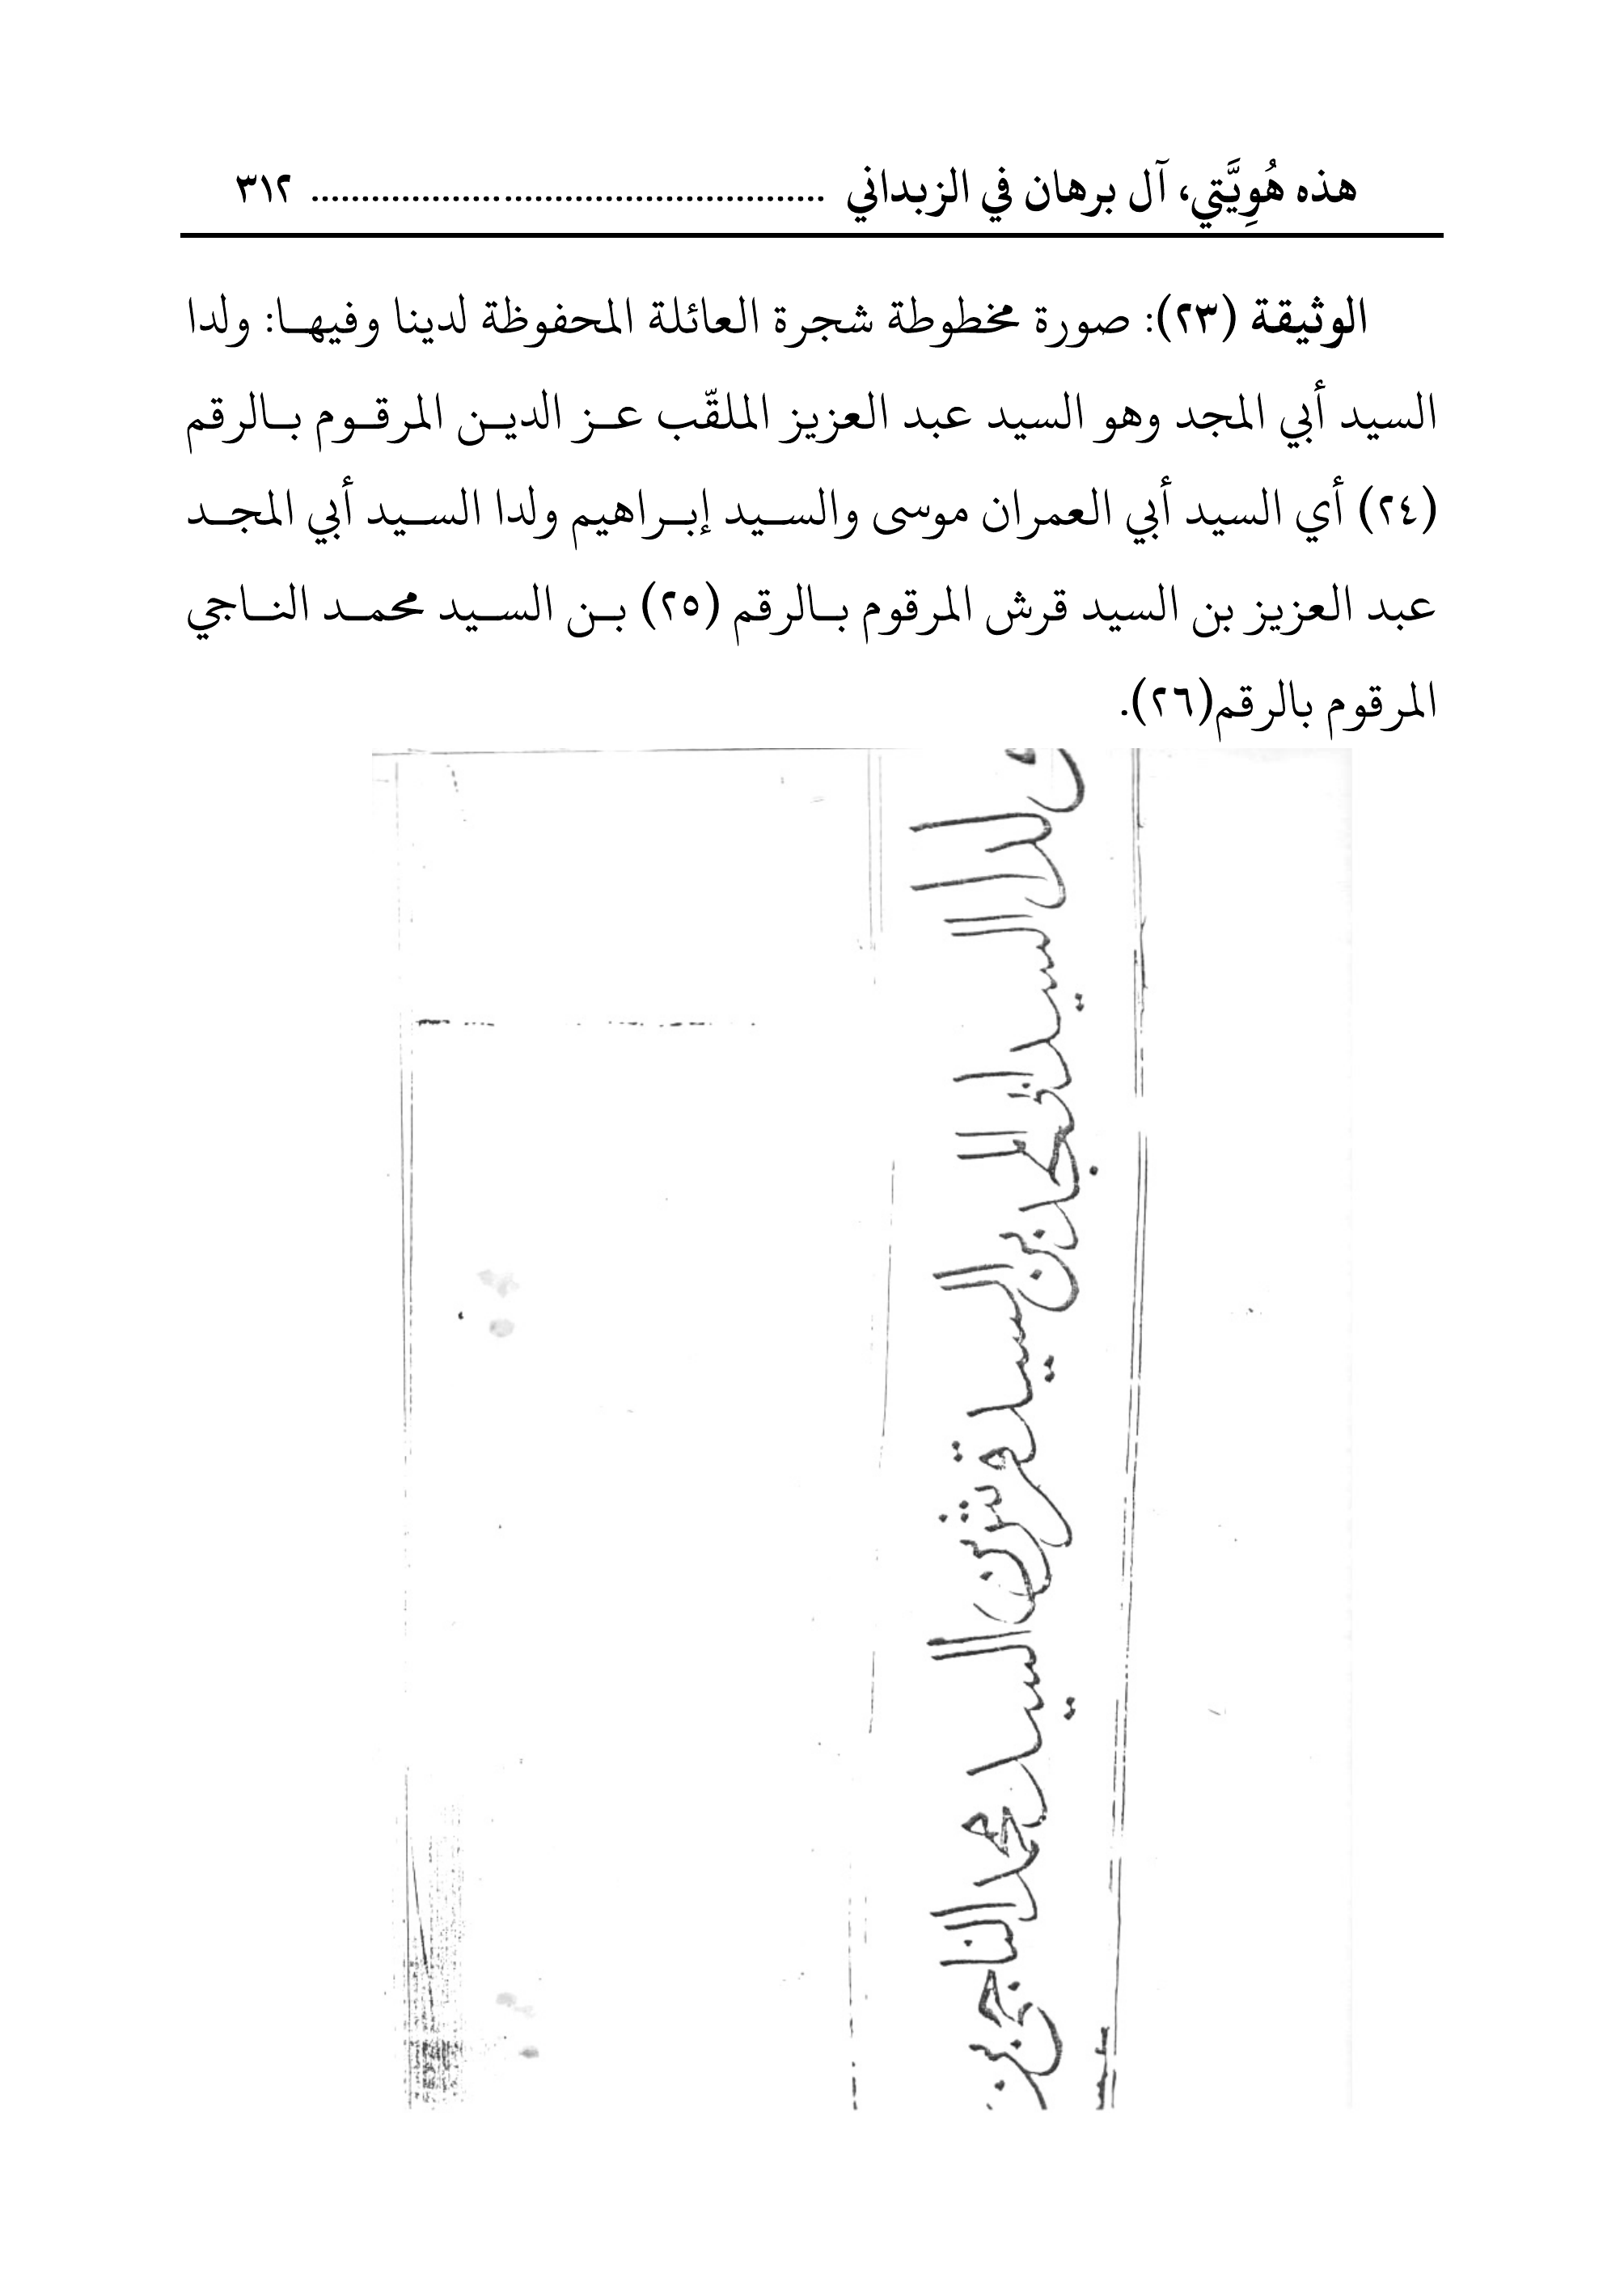 هذه هُوِيَّتي، آل برهان في الزبداني ................................................... ٣١٢
الوثيقة (٢٣): صورة مخطوطة شجرة العائلة المحفوظة لدينا وفيها: ولدا
السيد أبي المجد وهو السيد عبد العزيز الملقّب عز الدين المرقوم بالرقم
(٢٤) أي السيد أبي العمران موسى والسيد إبراهيم ولدا السيد أبي المجد
عبد العزيز بن السيد قرش المرقوم بالرقم (٢٥) بن السيد محمد الناجي
المرقوم بالرقم(٢٦).
ولدا السيد ابى المجد بن السيد قرش بن السيد محمد الناجى بن